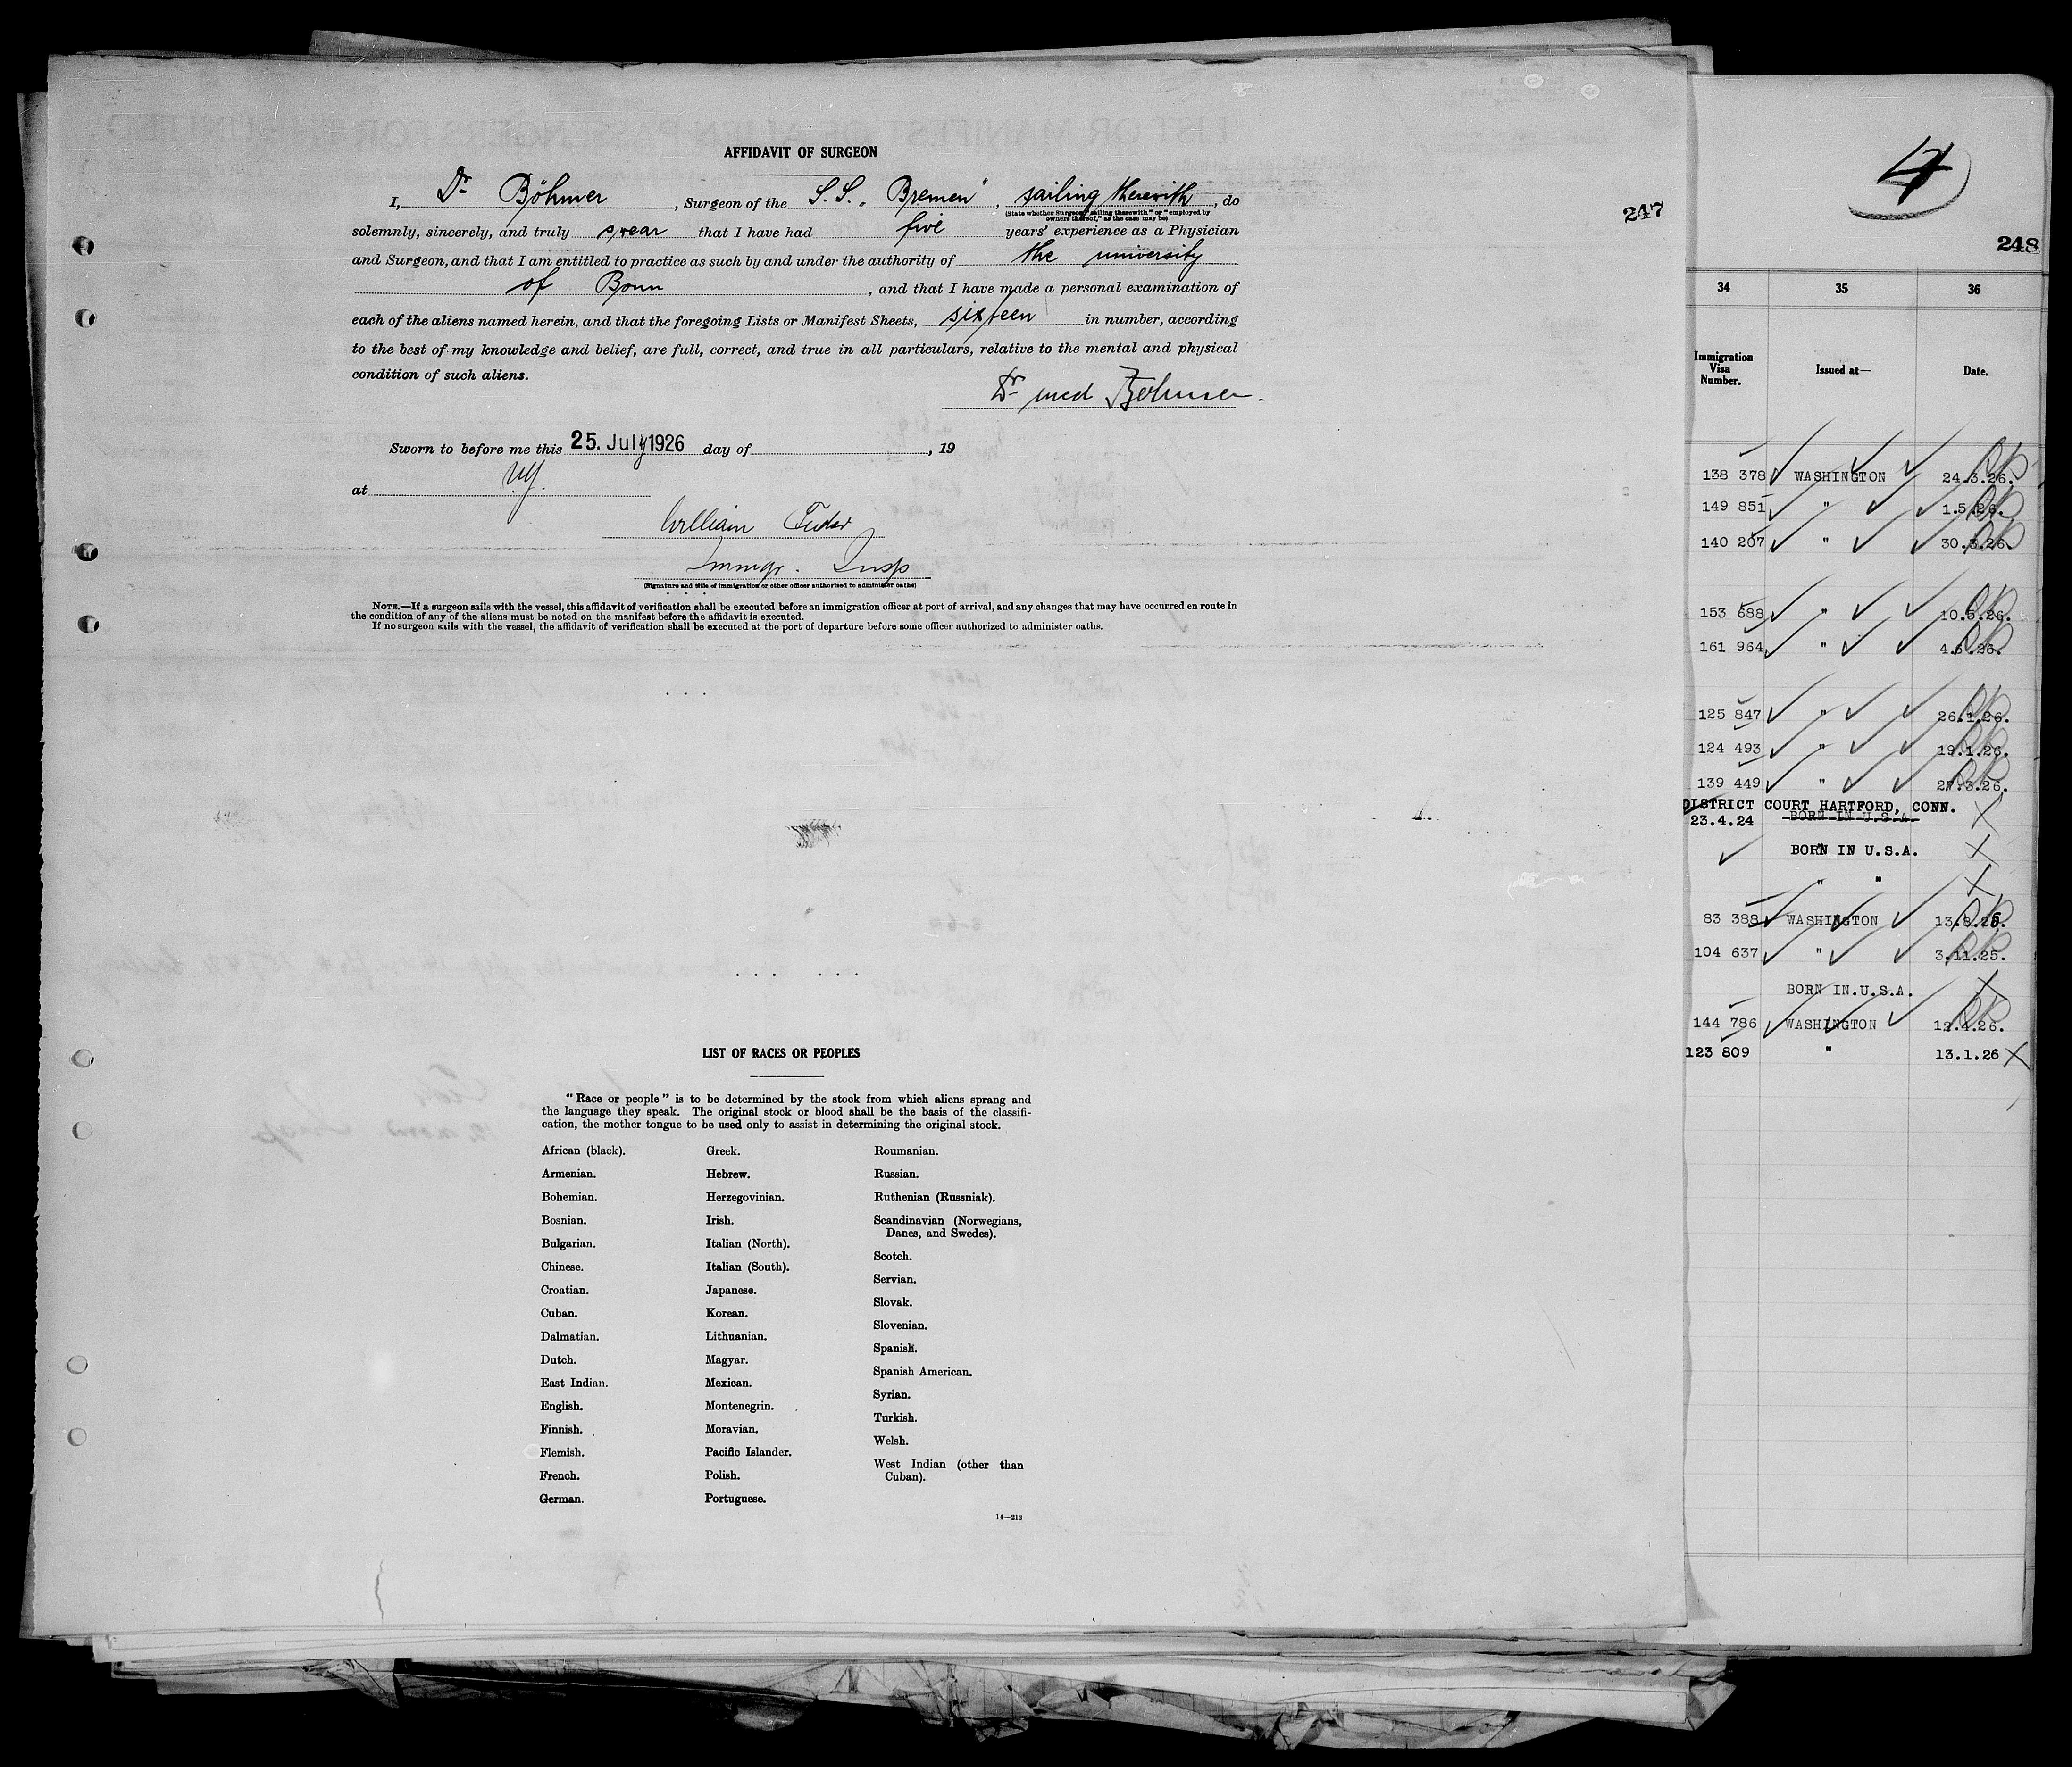 AFFIDAVIT OF SURGEON
I, Dr Böhmer, Surgeon of the S.S. „Bremen", sailing therewith, do
(State whether Surgeon "sailing therewith" or "employed by
owners thereof," as the case may be)
solemnly, sincerely, and truly swear that I have had five years' experience as a Physician
and Surgeon, and that I am entitled to practice as such by and under the authority of the university
of Bonn, and that I have made a personal examination of
each of the aliens named herein, and that the foregoing Lists or Manifest Sheets, sixteen in number, according
to the best of my knowledge and belief, are full, correct, and true in all particulars, relative to the mental and physical
condition of such aliens.
Dr med Böhmer.
Sworn to before me this 25. July 1926 day of , 19
at NY.
William Tudor
Immgr. Insp
(Signature and title of immigration or other officer authorized to administer oaths)
NOTE.—If a surgeon sails with the vessel, this affidavit of verification shall be executed before an immigration officer at port of arrival, and any changes that may have occurred en route in
the condition of any of the aliens must be noted on the manifest before the affidavit is executed.
If no surgeon sails with the vessel, the affidavit of verification shall be executed at the port of departure before some officer authorized to administer oaths.
LIST OF RACES OR PEOPLES
"Race or people" is to be determined by the stock from which aliens sprang and
the language they speak. The original stock or blood shall be the basis of the classifi-
cation, the mother tongue to be used only to assist in determining the original stock.
African (black).
Armenian.
Bohemian.
Bosnian.
Bulgarian.
Chinese.
Croatian.
Cuban.
Dalmatian.
Dutch.
East Indian.
English.
Finnish.
Flemish.
French.
German.
Greek.
Hebrew.
Herzegovinian.
Irish.
Italian (North).
Italian (South).
Japanese.
Korean.
Lithuanian.
Magyar.
Mexican.
Montenegrin.
Moravian.
Pacific Islander.
Polish.
Portuguese.
Roumanian.
Russian.
Ruthenian (Russniak).
Scandinavian (Norwegians,
Danes, and Swedes).
Scotch.
Servian.
Slovak.
Slovenian.
Spanish.
Spanish American.
Syrian.
Turkish.
Welsh.
West Indian (other than
Cuban).
14—213
247
4
248
34 35 36
Immigration
Visa
Number.
Issued at—
Date.
138 378 WASHINGTON 24.3.26.
149 851 " 1.5.26.
140 207 " 30.3.26.
153 688 " 10.5.26.
161 964 " 4.6.26.
125 847 " 26.1.26.
124 493 " 19.1.26.
139 449 " 27.3.26.
DISTRICT COURT HARTFORD, CONN.
23.4.24 BORN IN U.S.A.
BORN IN U.S.A.
" "
83 388 WASHINGTON 13.8.25.
104 637 " 3.11.25.
BORN IN.U.S.A.
144 786 WASHINGTON 12.4.26.
123 809 " 13.1.26